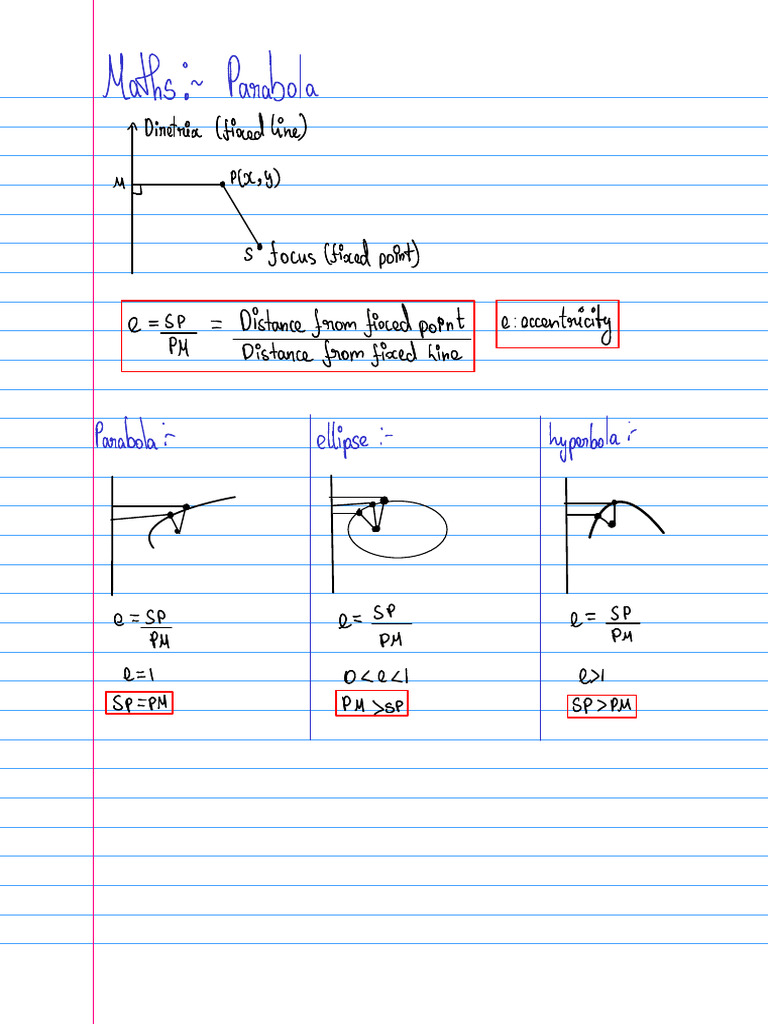 Maths:~ Parabola
Diretrix (fixed line)
M
P(x,y)
S focus (fixed point)
e = SP/PM = Distance from fixed point/Distance from fixed line
e: eccentricity
Parabola :-
e = SP/PM
e=1
SP=PM
ellipse :-
e = SP/PM
0<e<1
PM >SP
hyperbola :-
e = SP/PM
e>1
SP>PM